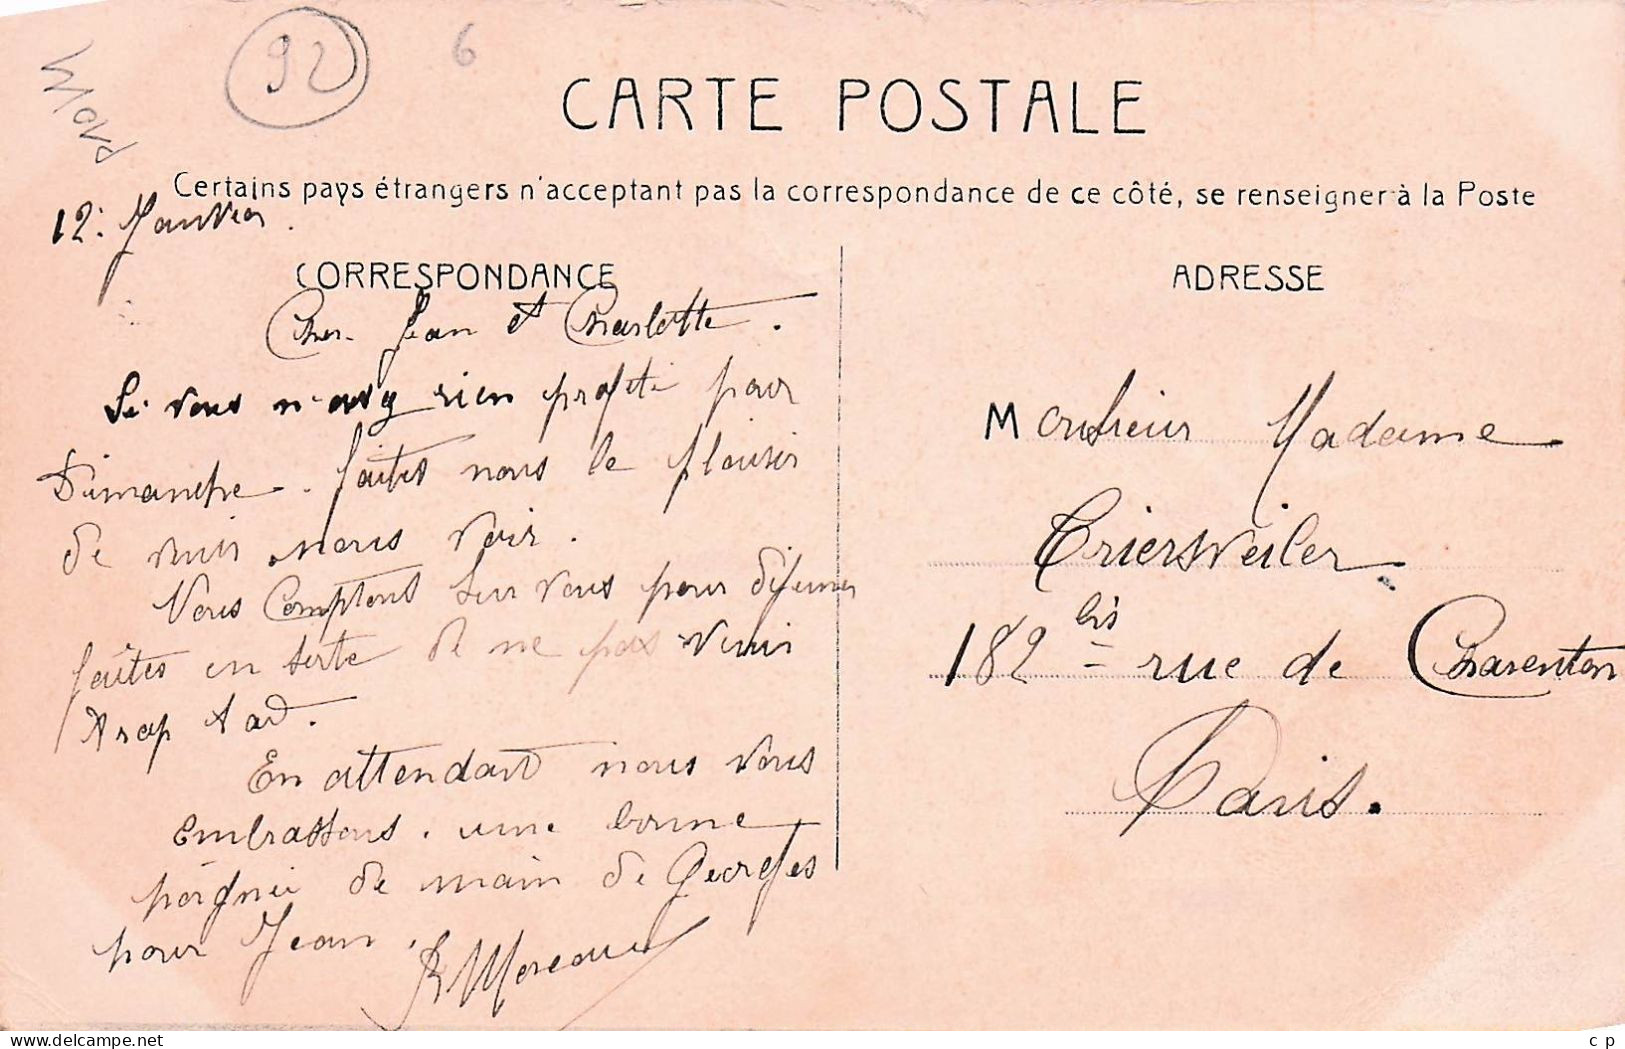 92
6
CARTE POSTALE
Certains pays étrangers n'acceptant pas la correspondance de ce côté, se renseigner à la Poste
12. Janvier.
CORRESPONDANCE
Cher Jean et Charlotte.
Si vous n'avez rien profité pour
Dimanche. faites nous le plaisir
de venir nous voir.
Nous Comptons sur vous pour déjeuner
faites en sorte de ne pas venir
trop tard.
En attendant nous vous
embrassons. une bonne
poignée de main de Georges
pour Jean.
Moreau
ADRESSE
Monsieur Madame
Triersveiler
182 bis rue de Charenton
Paris.
delcampe.net
cp